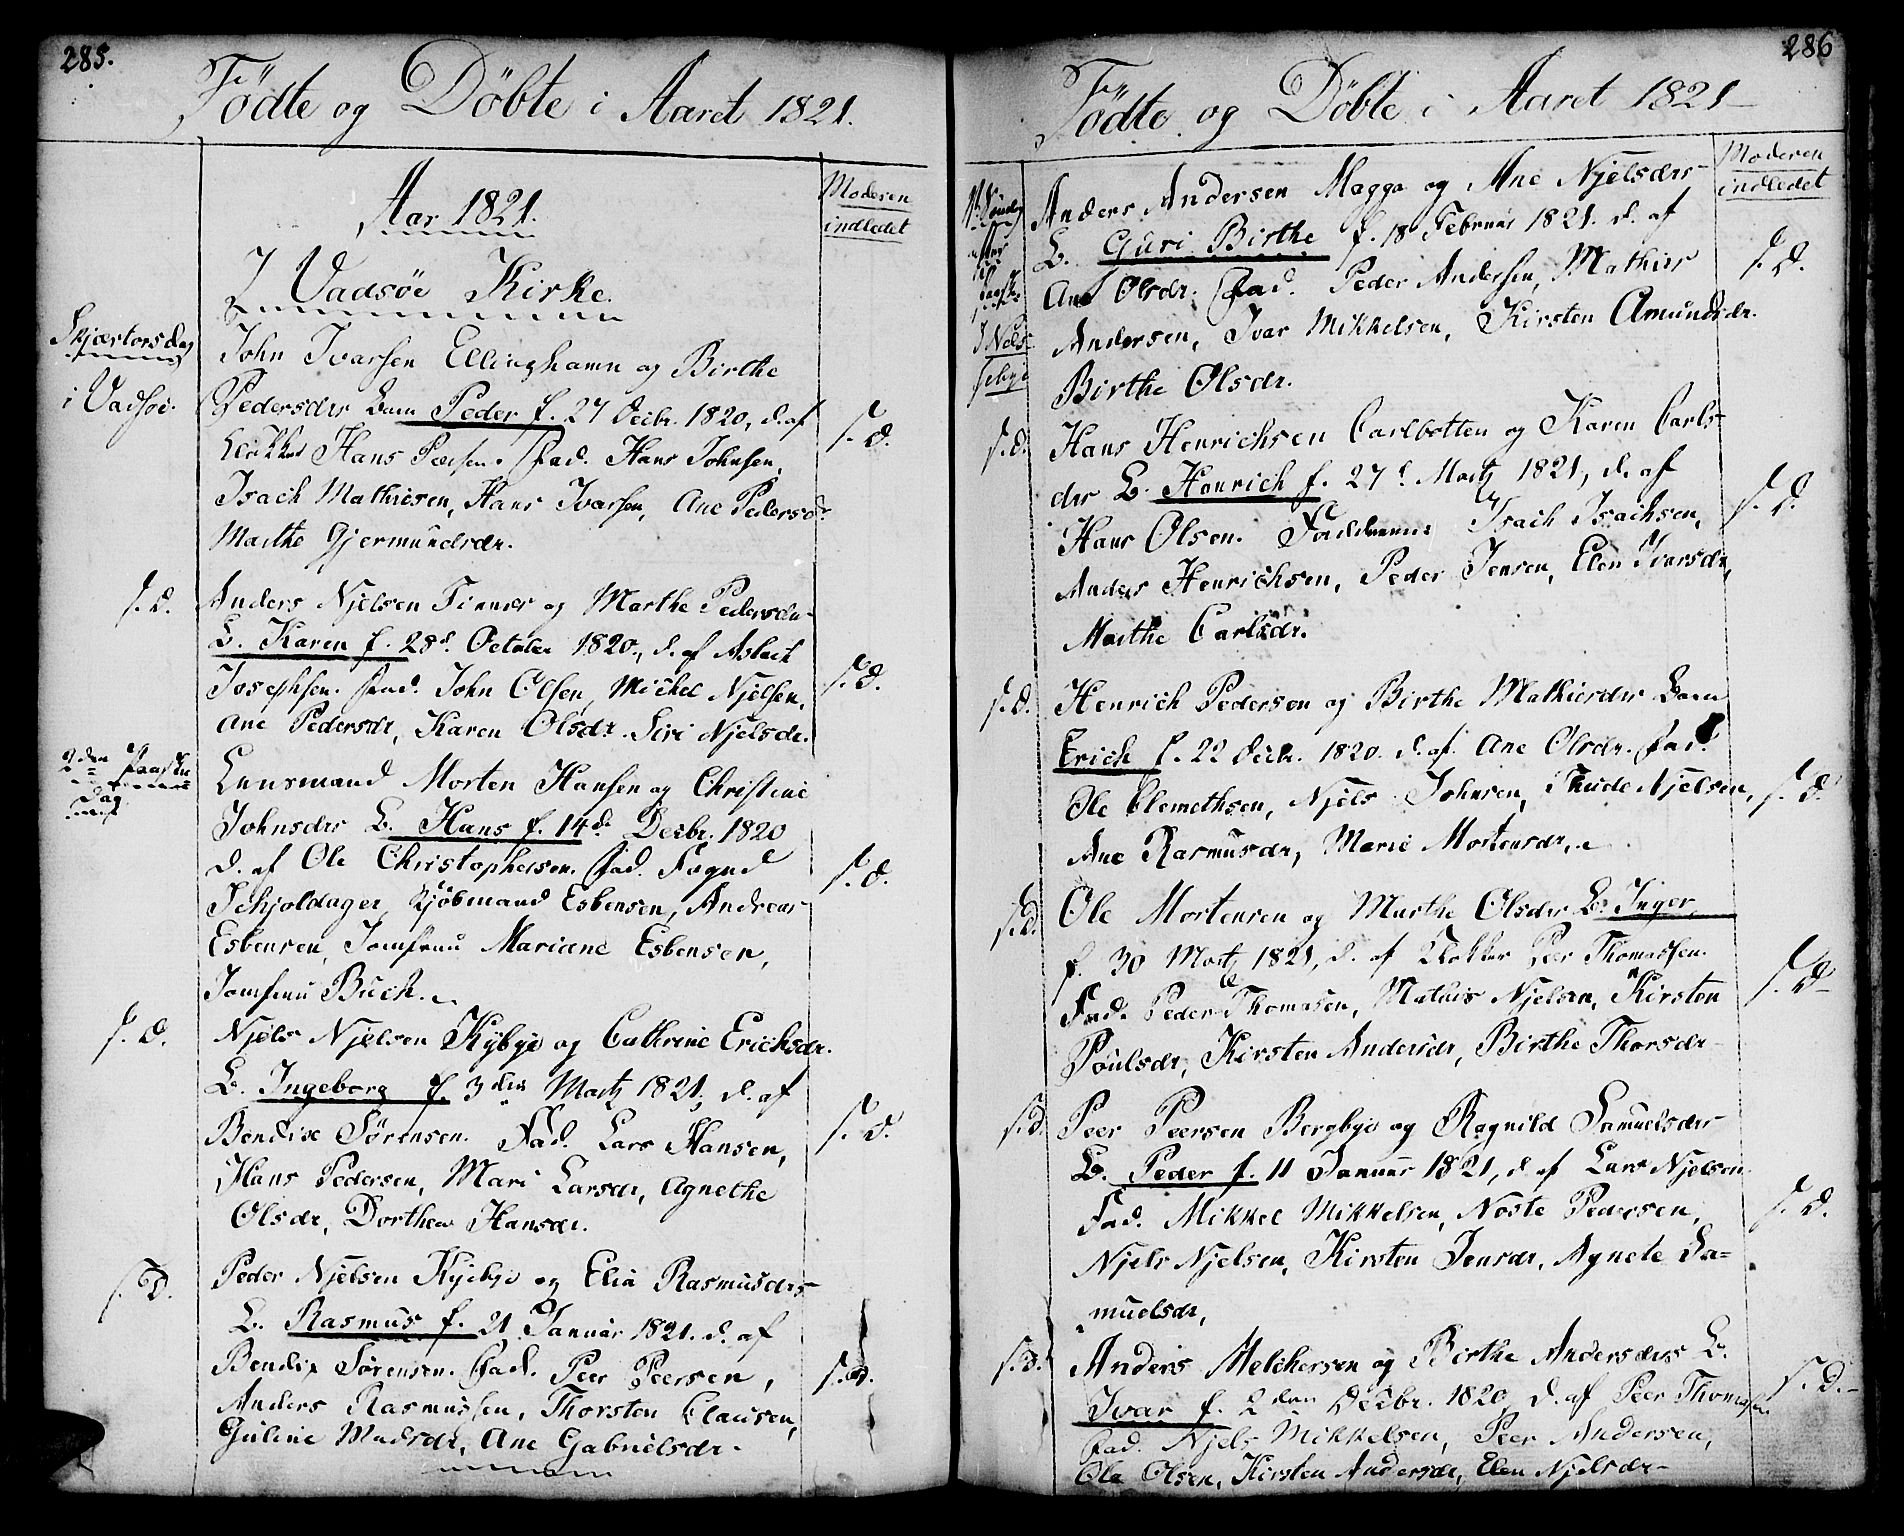 285.
Födte og Döbte i Aaret 1821.
Aar 1821.
Moderen
indledet
I Vadsöe Kirke.
Skjærtorsdag
i Vadsöe.
John Ivarsen Ellinghamn og Birthe
Pedersdr Barn Peder f. 27 Decbr. 1820, d. af
Klokker Hans Peersen. Fad. Hans Johnsen,
Isach Mathiesen, Hans Ivarsen, Ane Pedersdr
Marthe Gjermundsdr.
s. D.
s. D.
Anders Njelsen Finnes og Marthe Pedersdr
B. Karen f. 28d October 1820, d. af Aslach
Josephsen. Fad. John Olsen, Michel Njelsen,
Ane Pedersdr, Karen Olsdr. Siri Njelsdr.
s. D.
2den Paaske
Dag
Lensmand Morten Hansen og Christine
Johnsdr B. Hans f. 14d. Decbr. 1820
d. af Ole Christophersen. Fad. Foged
Schjoldager, Kjöbmand Esbensen, Andreas
Esbensen, Jomfruu Mariane Esbensen,
Jomfruu Buck.
s. D.
s. D.
Njels Njelsen Kybye og Cathrine Erichsdr.
B. Ingeborg f. 3den Martz 1821, d. af
Bendix Sörensen. Fad. Lars Hansen,
Hans Pedersen, Mari Larsdr, Agnethe
Olsdr, Dorthea Hansdr.
s. D.
s. D.
Peder Njelsen Kyebye og Elia Rasmusdr
B. Rasmus f. 21 Januar 1821. d. af
Bendix Sörensen. Fad. Peer Peersen,
Anders Rasmussen, Thorsten Clausen,
Guline Madsdr, Ane Gabrielsdr.
s. D.
286
Födte og Döbte i Aaret 1821
Moderen
indledet
4de Söndag
efter
Paaske
i Nes-
sebye
Anders Andersen Magga og Ane Njelsdr
B. Guri Birthe f. 18 Februar 1821. d. af
Ane Olsdr. Fad. Peder Andersen, Mathies
Andersen, Ivar Mikkelsen, Kirsten Amundsdr.
Birthe Olsdr.
s. D.
s. d.
Hans Henrichsen Carlbotten og Karen Carls-
dr B. Henrich f. 27d Martz 1821, d. af
Hans Olsen. Fadderne Isach Isachsen,
Anders Henrichsen, Peder Jensen, Elen Ivarsdr,
Marthe Carlsdr.
s. D.
s. d.
Henrich Pedersen og Birthe Mathiesdr Barn
Erich f. 22 Decbr. 1820. d. af. Ane Olsdr. Fad.
Ole Clemethsen, Njels Johnsen, Thude Njelsen,
Ane Rasmusdr, Marie Mortensdr,
s. D.
s. d.
Ole Mortensen og Marthe Olsdr B. Inger,
f. 30 Martz 1821, d. af Klokker Peer Thomassen.
Fad. Peder Thomasen, Mathis Njelsen, Kirsten
Poulsdr, Kirsten Andersdr, Birthe Thorsdr
s. D
s. d
Peer Peersen Bergbye og Ragnild Samuelsdr
B. Peder f. 11 Januar 1821, d. af Lars Njelsen
Fad. Mikkel Mikkelsen, Noste Pedersen,
Njels Njelsen, Kirsten Jensdr, Agnete Sa=
muelsdr,
s. D.
s. d.
Anders Melchersen og Birthe Andersdr B.
Ivar f. 2den Decbr. 1820, d. af Peer Thomasen
Fad. Njels Mikkelsen, Peer Andersen,
Ole Olsen, Kirsten Andersdr, Elen Njelsdr
s. D.